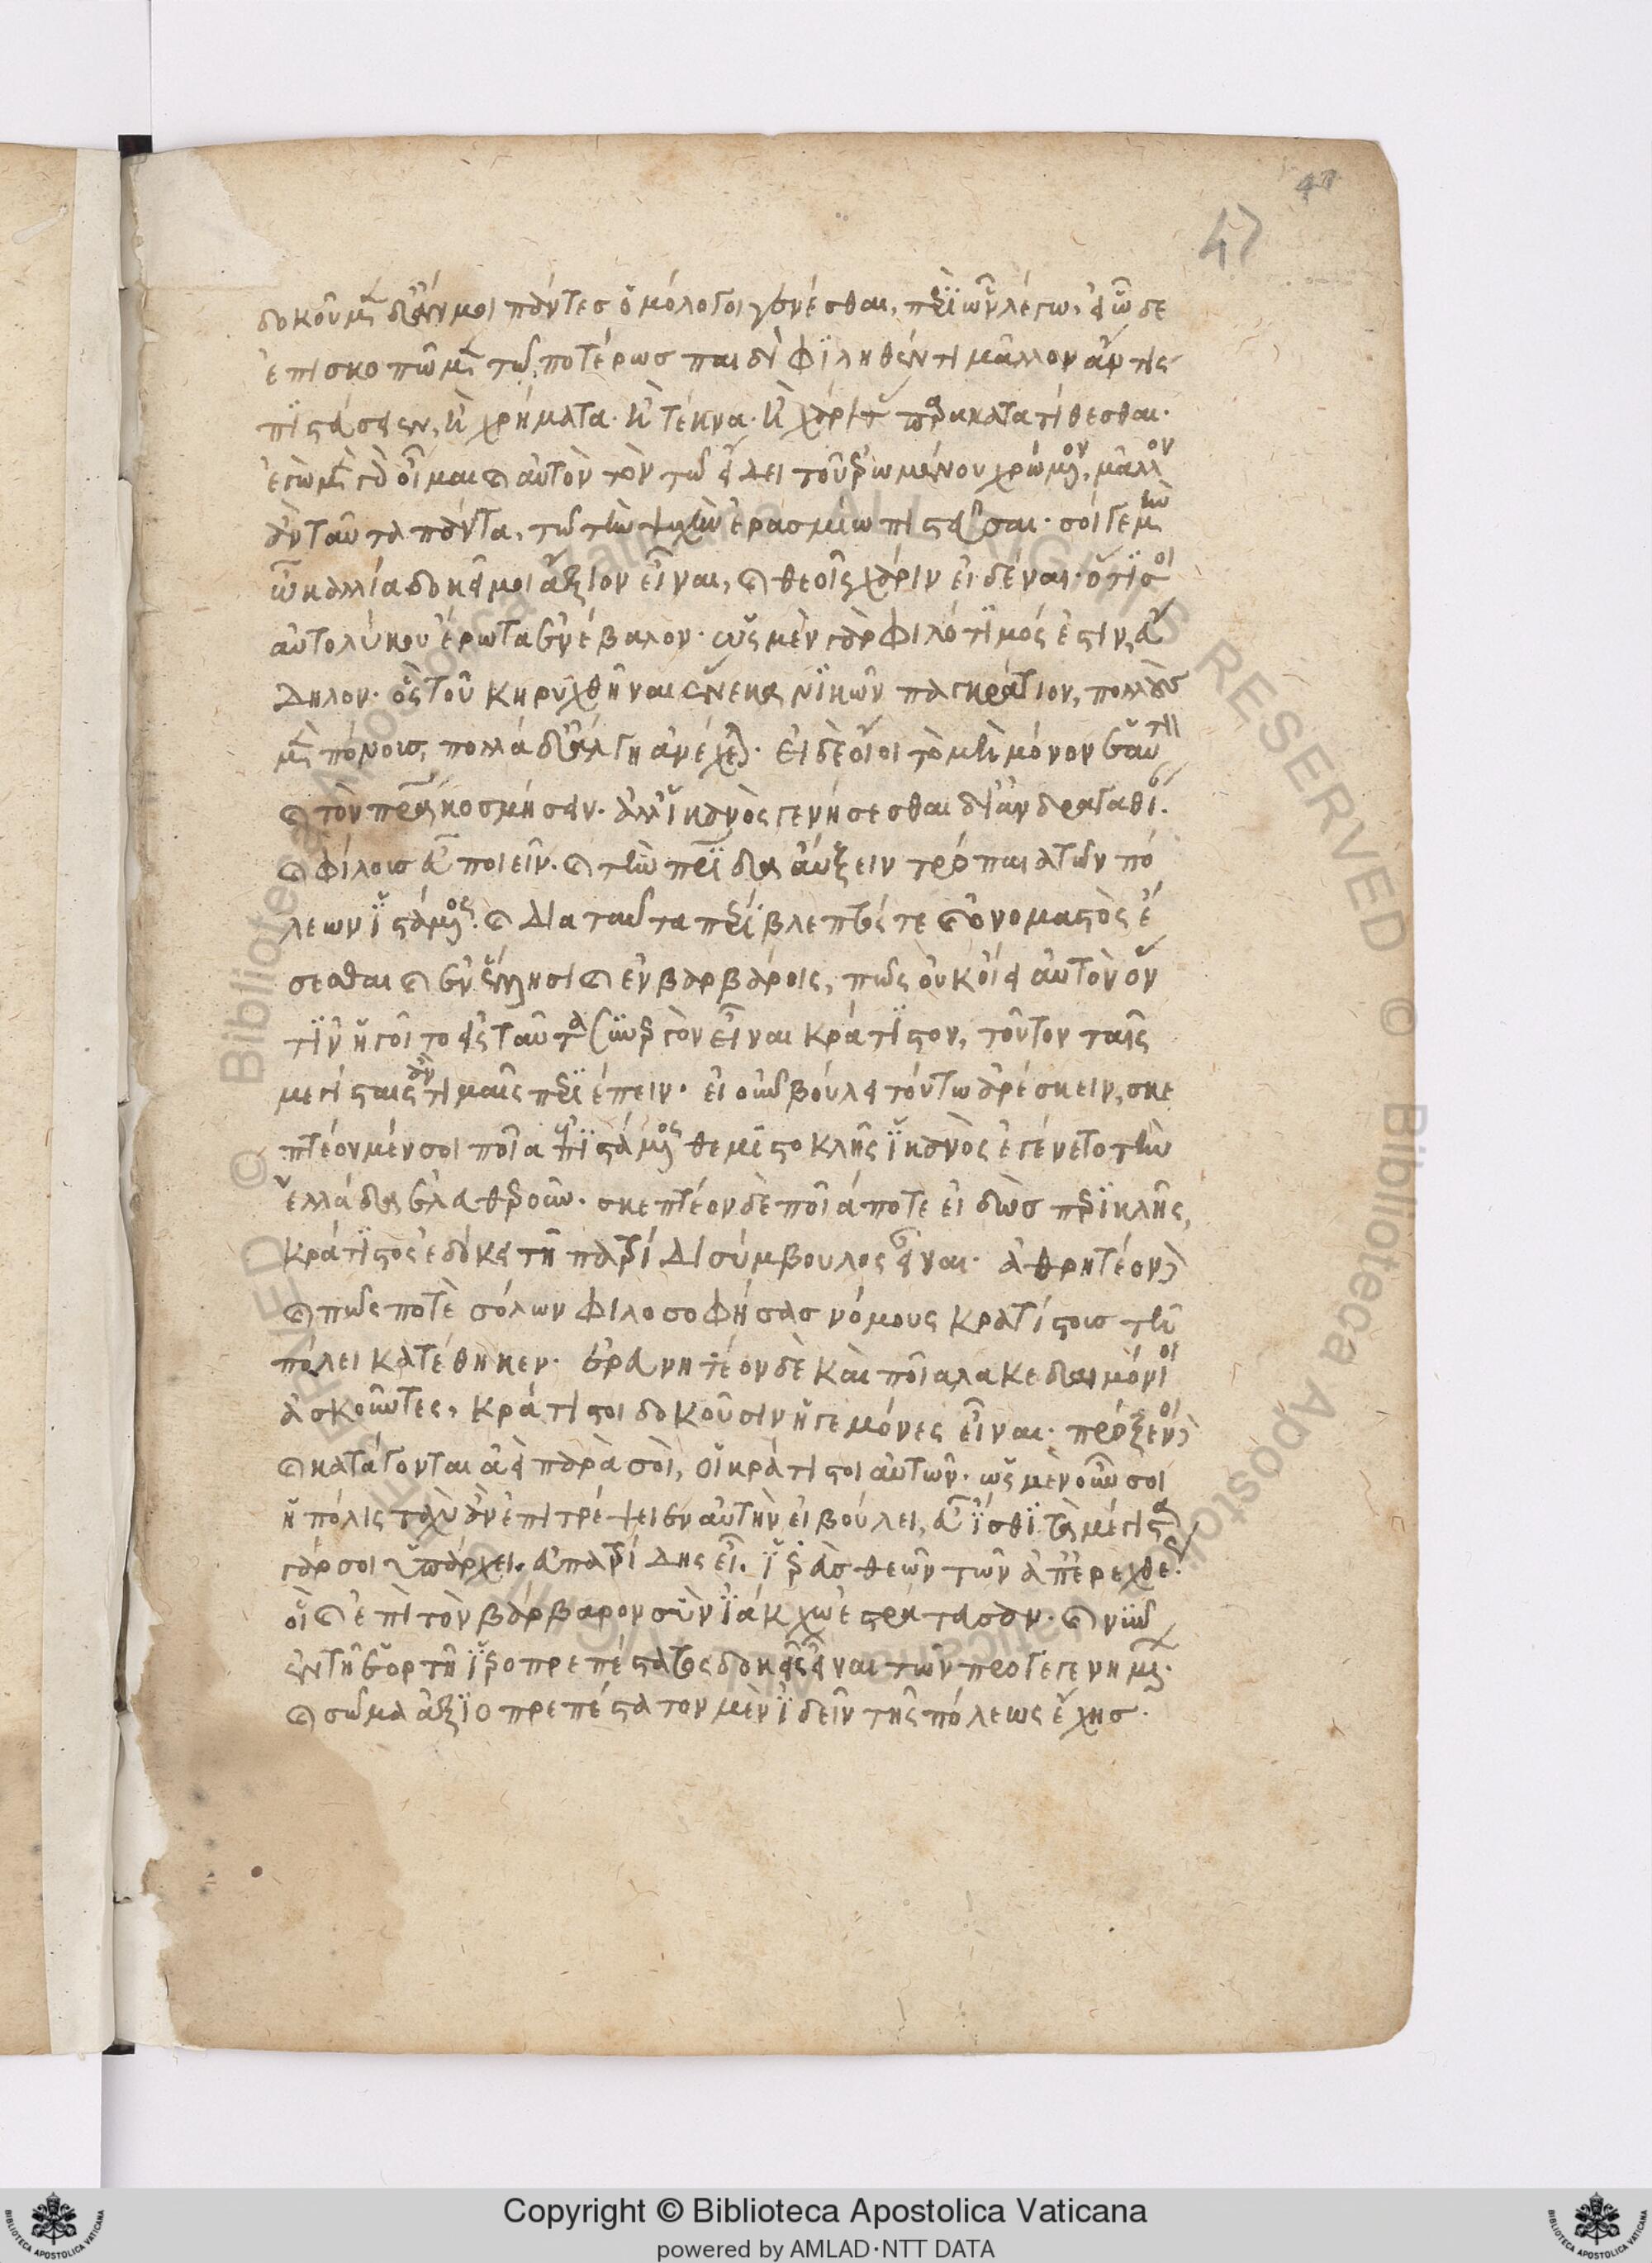 47
47
δοκοῦμεν δ' ἄν μοι πάντες ὁμόλογοι γενέσθαι, περὶ ὧν λέγω, εἰ ὧδε
ἐπισκοποῖμεν τῷ ποτέρως παιδὶ φιληθέντι μᾶλλον ἄν τις
πιστεύσειεν, ἢ χρήματα· ἢ τέκνα· ἢ χάριτας παρακατατίθεσθαι·
ἐγὼ μὲν γὰρ οἶμαι καὶ αὐτὸν τὸν τῷ εἴδει τοῦ ἐρωμένου χρώμενον, μᾶλλον
ἂν ταῦτα πάντα, τῷ τὴν ψυχὴν ἐρασμίῳ πιστεῦσαι· σοί γε μὴν
ὦ καλλία δοκεῖ μοι ἄξιον εἶναι, καὶ θεοῖς χάριν εἰδέναι· ὅτι σοι
αὐτολύκου ἔρωτα ἐνέβαλον· ὡς μὲν γὰρ φιλότιμός ἐστιν, εὔ
δηλον· ὃς τοῦ κηρυχθῆναι ἕνεκα νικῶν παγκράτιον, πολλοὺς
μὲν πόνους, πολλὰ δ' ἄλγη ἀνέχεται· εἰ δὲ οἴοιτο μὴ μόνον ἑαυτὸν
καὶ τὸν πατέρα κοσμήσειν· ἀλλ' ἱκανὸς γενήσεσθαι δι' ἀνδραγαθίαν·
καὶ φίλους εὖ ποιεῖν· καὶ τὴν πατρίδα αὔξειν τρόπαια τῶν πο
λεμίων ἱστάμενος· καὶ διὰ ταῦτα περίβλεπτός τε καὶ ὀνομαστὸς ἔ
σεσθαι καὶ ἐν ἕλλησι καὶ ἐν βαρβάροις, πῶς οὐκ οἴει αὐτὸν ὅν
τιν' ἡγοῖτο εἰς ταῦτα συνεργὸν εἶναι κράτιστον, τοῦτον ταῖς
μεγίσταις ἂν τιμαῖς περιέπειν· εἰ οὖν βούλει τούτῳ ἀρέσκειν, σκε
πτέον μέν σοι ποῖα ἐπιστάμενος θεμιστοκλῆς ἱκανὸς ἐγένετο τὴν
ἑλλάδα ἐλευθεροῦν· σκεπτέον δὲ ποῖά ποτε εἰδὼς περικλῆς,
κράτιστος ἐδόκει τῇ πατρίδι σύμβουλος εἶναι· ἀθρητέον
καὶ πῶς ποτὲ σόλων φιλοσοφήσας νόμους κρατίστους τῇ
πόλει κατέθηκεν· ἐρευνητέον δὲ καὶ ποῖα λακεδαιμόνιοι
ἀσκοῦντες, κράτιστοι δοκοῦσιν ἡγεμόνες εἶναι· πρόξενοι
καὶ κατάγονται ἀεὶ παρὰ σοὶ, οἱ κράτιστοι αὐτῶν· ὡς μὲν οὖν σοι
ἡ πόλις ταχὺ ἂν ἐπιτρέψειεν αὑτὴν εἰ βούλει, εὖ ἴσθι· τὰ μέγιστα
γάρ σοι ὑπάρχει· εὐπατρίδης εἶ, ἱερεὺς θεῶν τῶν ἀπ' ἐρεχθέως·
οἳ καὶ ἐπὶ τὸν βάρβαρον σὺν ἰάκχῳ ἐστράτευσαν· καὶ νῦν
ἐν τῇ ἑορτῇ ἱεροπρεπέστατος δοκεῖς εἶναι τῶν προγεγενημένων·
καὶ σῶμα ἀξιοπρεπέστατον μὲν ἰδεῖν τῆς πόλεως ἔχεις·
© Biblioteca Apostolica Vaticana ALL RIGHTS RESERVED © Biblioteca Apostolica Vaticana ALL RIGHTS RESERVED
Copyright © Biblioteca Apostolica Vaticana
powered by AMLAD·NTT DATA
BIBLIOTECA APOSTOLICA VATICANA
BIBLIOTECA APOSTOLICA VATICANA